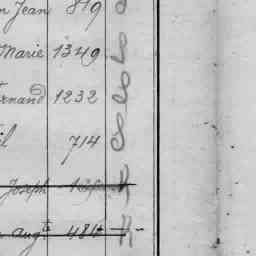 n Jean 819 8
Marie 1349 8
ernand 1232 8
il 714 8
Joseph R
Augte 486 R